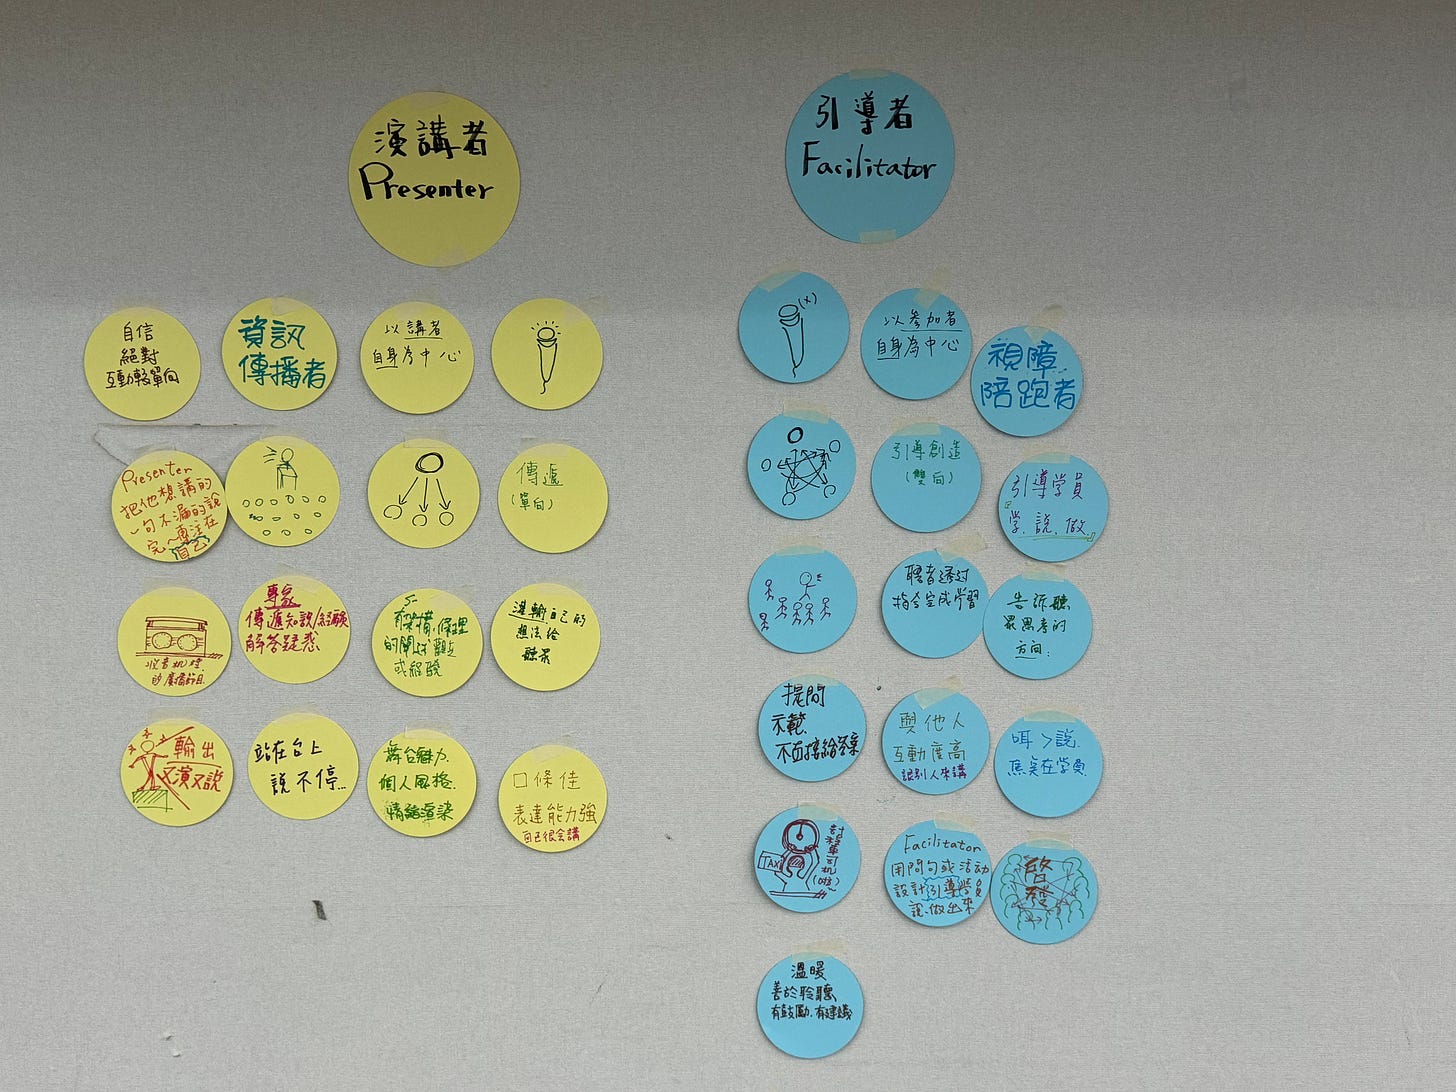 演講者
Presenter
自信
絕對
互動較單向
資訊
傳播者
以講者
自身為中心
Presenter
把他想講的
一句不漏的說
完～專注在
自己
傳遞
(單向)
收音机裡
的廣播節目
專家
傳遞知識/經驗
解答疑惑
有架構、條理
的闡述觀點
或經驗
灌輸自己的
想法給
聽眾
輸出
又演又說
站在台上
說不停...
舞台魅力
個人風格
情緒渲染
口條佳
表達能力強
自己很会講
引導者
Facilitator
(x)
以参加者
自身為中心
視障
陪跑者
引導創造
(雙向)
引導学員
『学、說、做』
聽者透過
指令完成學習
告訴聽
眾思考的
方向
提問
示範
不直接給答案
與他人
互動度高
讓別人來講
少說
焦点在學員
TAXI
計程車司机
Facilitator
用問句或活動
設計引導學員
說、做出來
啓
發
溫暖
善於聆聽
有鼓勵、有建議